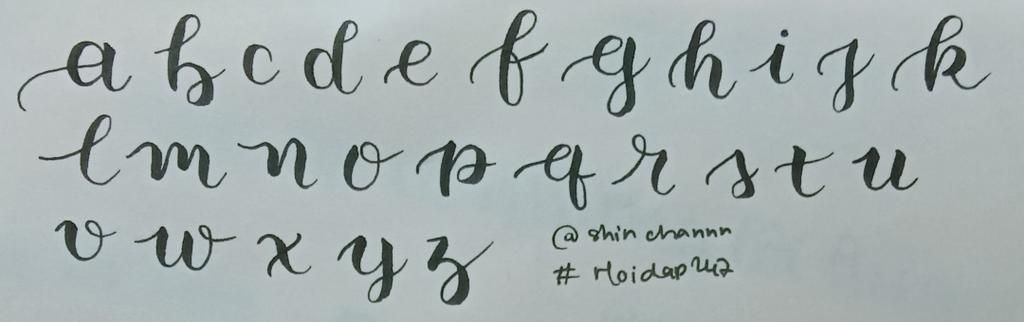 a b c d e f g h i j k
l m n o p q r s t u
v w x y z
@shin channn
#Hoidap247